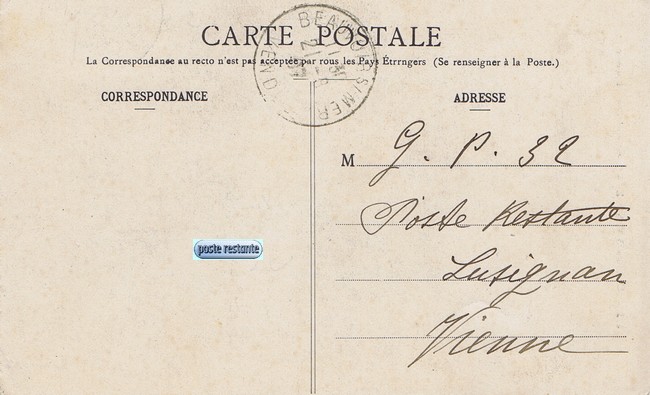 CARTE POSTALE
La Correspondance au recto n'est pas acceptée par tous les Pays Étrrngers (Se renseigner à la Poste.)
CORRESPONDANCE
ADRESSE
BEAUVOIR S/MER
M G. P. 32
Poste Restante
Lusignan
Vienne
poste restante